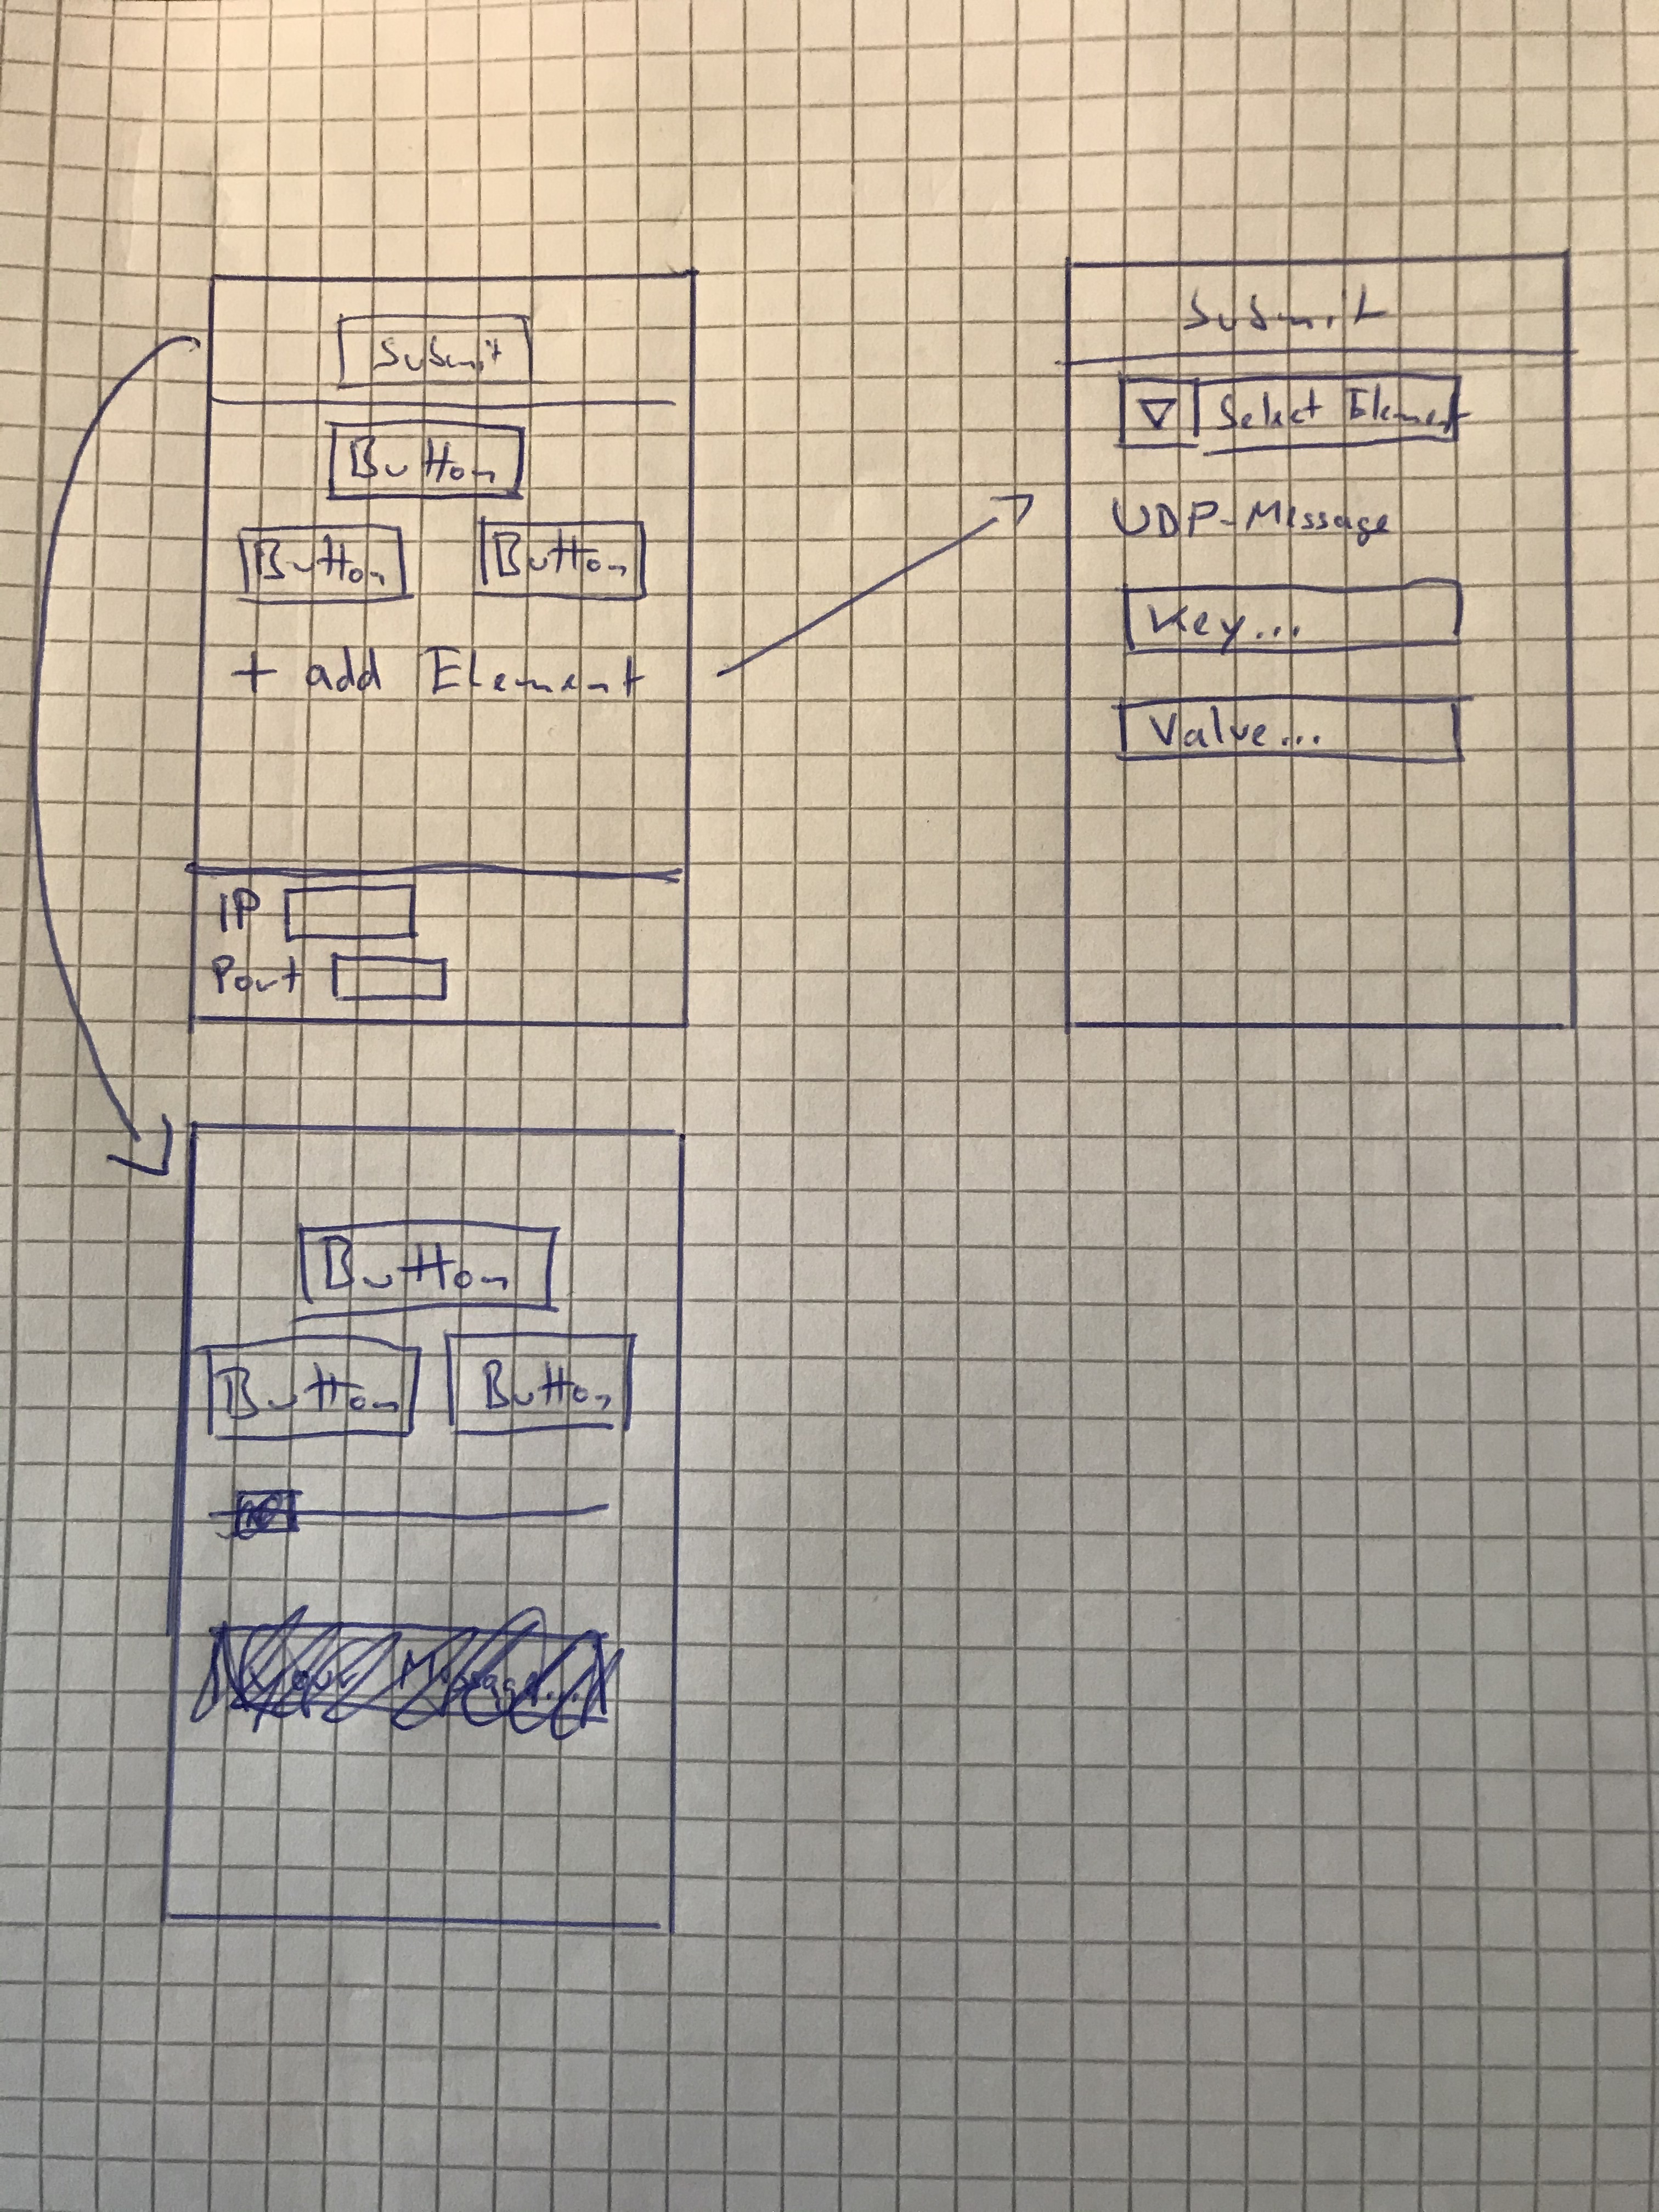 Submit
Button
Button Button
+ add Element
IP
Port
Submit
Select Element
UDP-Message
Key...
Value...
Button
Button Button